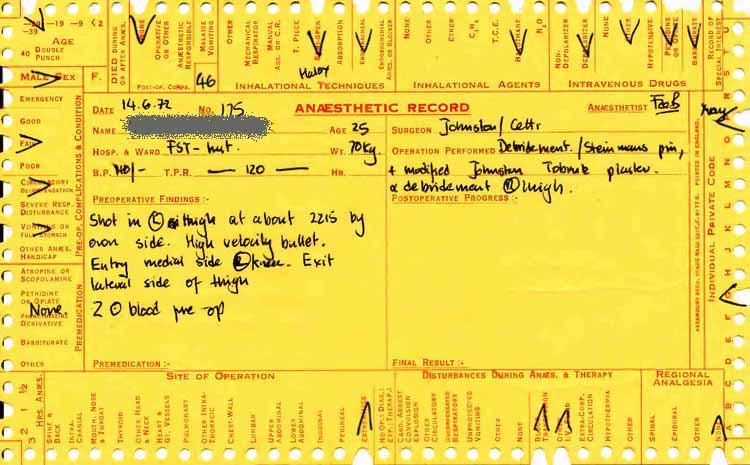 -39 -19 -9 <2
AGE
40 DOUBLE PUNCH
MALE SEX F.
DIED DURING OR AFTER ANÆS.
NONE
OPERATIVE OR OTHER
ANÆSTHETIC RESPONSIBLE
MALAISE VOMITING
OTHER
POST-OP. COMPS.
46
MECHANICAL RESPIRATOR
MANUAL ASS. OR C.R.
T. PIECE
ABSORPTION
ENDOTRACHEAL
ENDOBRONCHIAL OR BLOCKER
Halox
INHALATIONAL TECHNIQUES
NONE
OTHER
ETHER
C₃H₆
T.C.E.
HALOTHANE
N₂O
INHALATIONAL AGENTS
NON-DEPOLARIZER
DEPOLARIZER
NONE
OTHER
HYPOTENSIVE
PETHIDINE OR OPIATE
BARBITURATE
INTRAVENOUS DRUGS
RECORD OF SPECIAL INTEREST
EMERGENCY
GOOD
FAIR
POOR
CIRCULATORY DECOMPENSATION
SEVERE RESP. DISTURBANCE
VOMITING OR FULL STOMACH
OTHER ANÆS. HANDICAP
PRE-OP. COMPLICATIONS & CONDITION
ATROPINE OR SCOPOLAMINE
PETHIDINE OR OPIATE
None.
PHENOTHIAZINE DERIVATIVE
BARBITURATE
OTHER
PREMEDICATION
DATE 14.6.72 No. 175 ANÆSTHETIC RECORD ANÆSTHETIST
NAME AGE 25 SURGEON Johnston/
HOSP. & WARD FST-hut. WT. 70kg. OPERATION PERFORMED Debridement./Steinmans pin,
B.P. 110/- T.P.R. — 120 — HB. + modified Johnston Tobruk plaster.
& debridement Ⓛ thigh.
PREOPERATIVE FINDINGS :- POSTOPERATIVE PROGRESS :-
Shot in Ⓛ thigh at about 2215 by
own side. High velocity bullet.
Entry medial side Ⓛ knee. Exit
lateral side of thigh
2 O blood pre-op
PREMEDICATION :- FINAL RESULT :-
INDIVIDUAL PRIVATE CODE
PRINTED IN ENGLAND.
A B C D E F G H J K L M N O
HRS. ANÆS.
3 2 1 ½
SITE OF OPERATION
SPINE & BACK
INTRA-CRANIAL
MOUTH, NOSE & THROAT
THYROID
OTHER HEAD & NECK
HEART & GT. VESSELS
PULMONARY
OTHER INTRA-THORACIC
CHEST-WALL
LUMBAR
UPPER ABDOMINAL
LOWER ABDOMINAL
INGUINAL
PERINEAL
EXTREMITIES
DISTURBANCES DURING ANÆS. & THERAPY
CARD. ARREST CONVULSION EXPLOSION
OTHER CIRCULATORY
UNEXPECTED RESPIRATORY
UNEXPECTED VOMITING
OTHER
NONE
BLOOD TRANSFUSION
EXTRA-CORP. CIRCULATION
HYPOTHERMIA
OTHER
REGIONAL ANALGESIA
SPINAL
EPIDURAL
OTHER